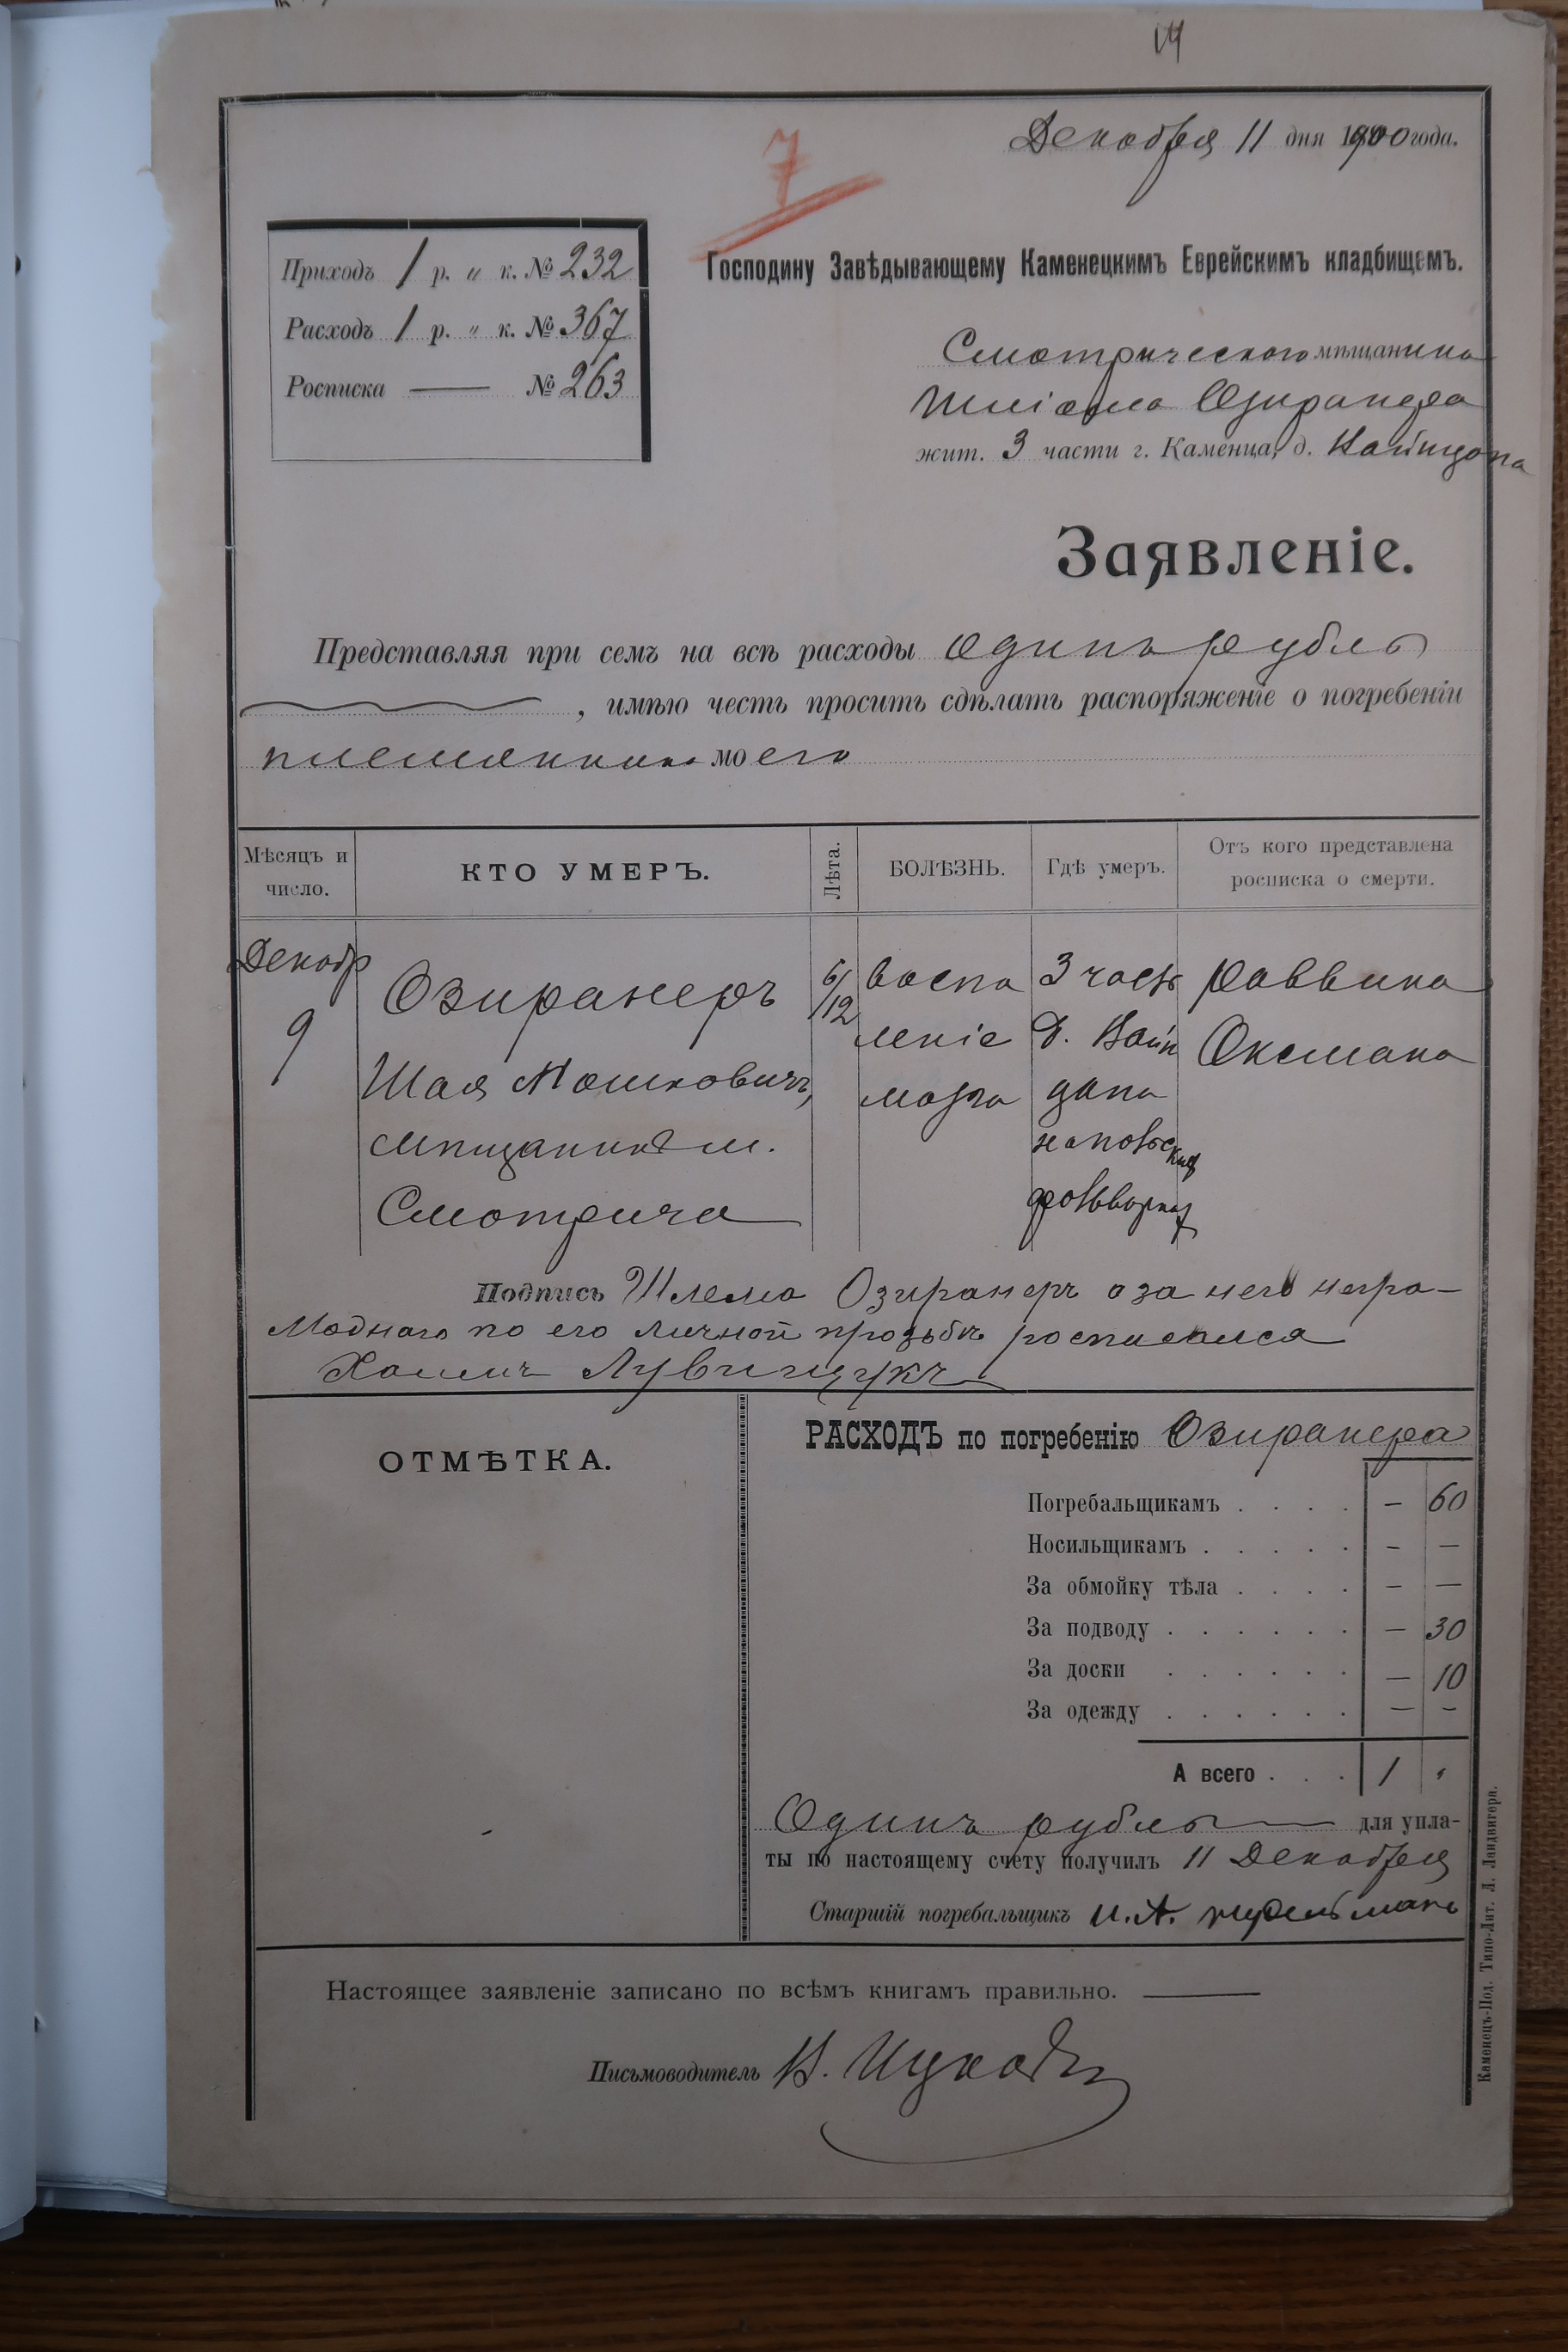 14
Декабря 11 дня 1900 года.
7
Приходъ 1 р. „ к. № 232
Расходъ 1 р. „ к. № 367
Росписка —— № 263
Господину Завѣдывающему Каменецкимъ Еврейскимъ кладбищемъ.
Смотрическаго мѣщанина
Шліома Озиранера
жит. 3 части г. Каменца, д.
Заявленіе.
Представляя при семъ на всѣ расходы одинъ рубль
, имѣю честь просить сдѣлать распоряженіе о погребеніи
племянника моего
Мѣсяцъ и число.
КТО УМЕРЪ.
Лѣта.
БОЛѢЗНЬ.
Гдѣ умеръ.
Отъ кого представлена росписка о смерти.
Декабр 9
Озиранеръ
Шая Мошковичъ,
мѣщанинъ м.
Смотрича
6/12
воспа
леніе
мозга
3 часть
д.
раввина
Оксмана
Подпись Шлема Озиранеръ а за него негра-
мотнаго по его личной прозьбѣ росписался
Хаимъ
ОТМѢТКА.
РАСХОДЪ по погребенію Озиранера
Погребальщикамъ . . . . — 60
Носильщикамъ . . . . . — —
За обмойку тѣла . . . . — —
За подводу . . . . . . — 30
За доски . . . . . . — 10
За одежду . . . . . . — —
А всего . . . 1 „
Одинъ рубль —— для упла-
ты по настоящему счету получилъ 11 Декабря
Старшій погребальщикъ И. А.
Настоящее заявленіе записано по всѣмъ книгамъ правильно. ——
Письмоводитель
Каменецъ-Под. Типо-Лит. Л. Ландвигера.